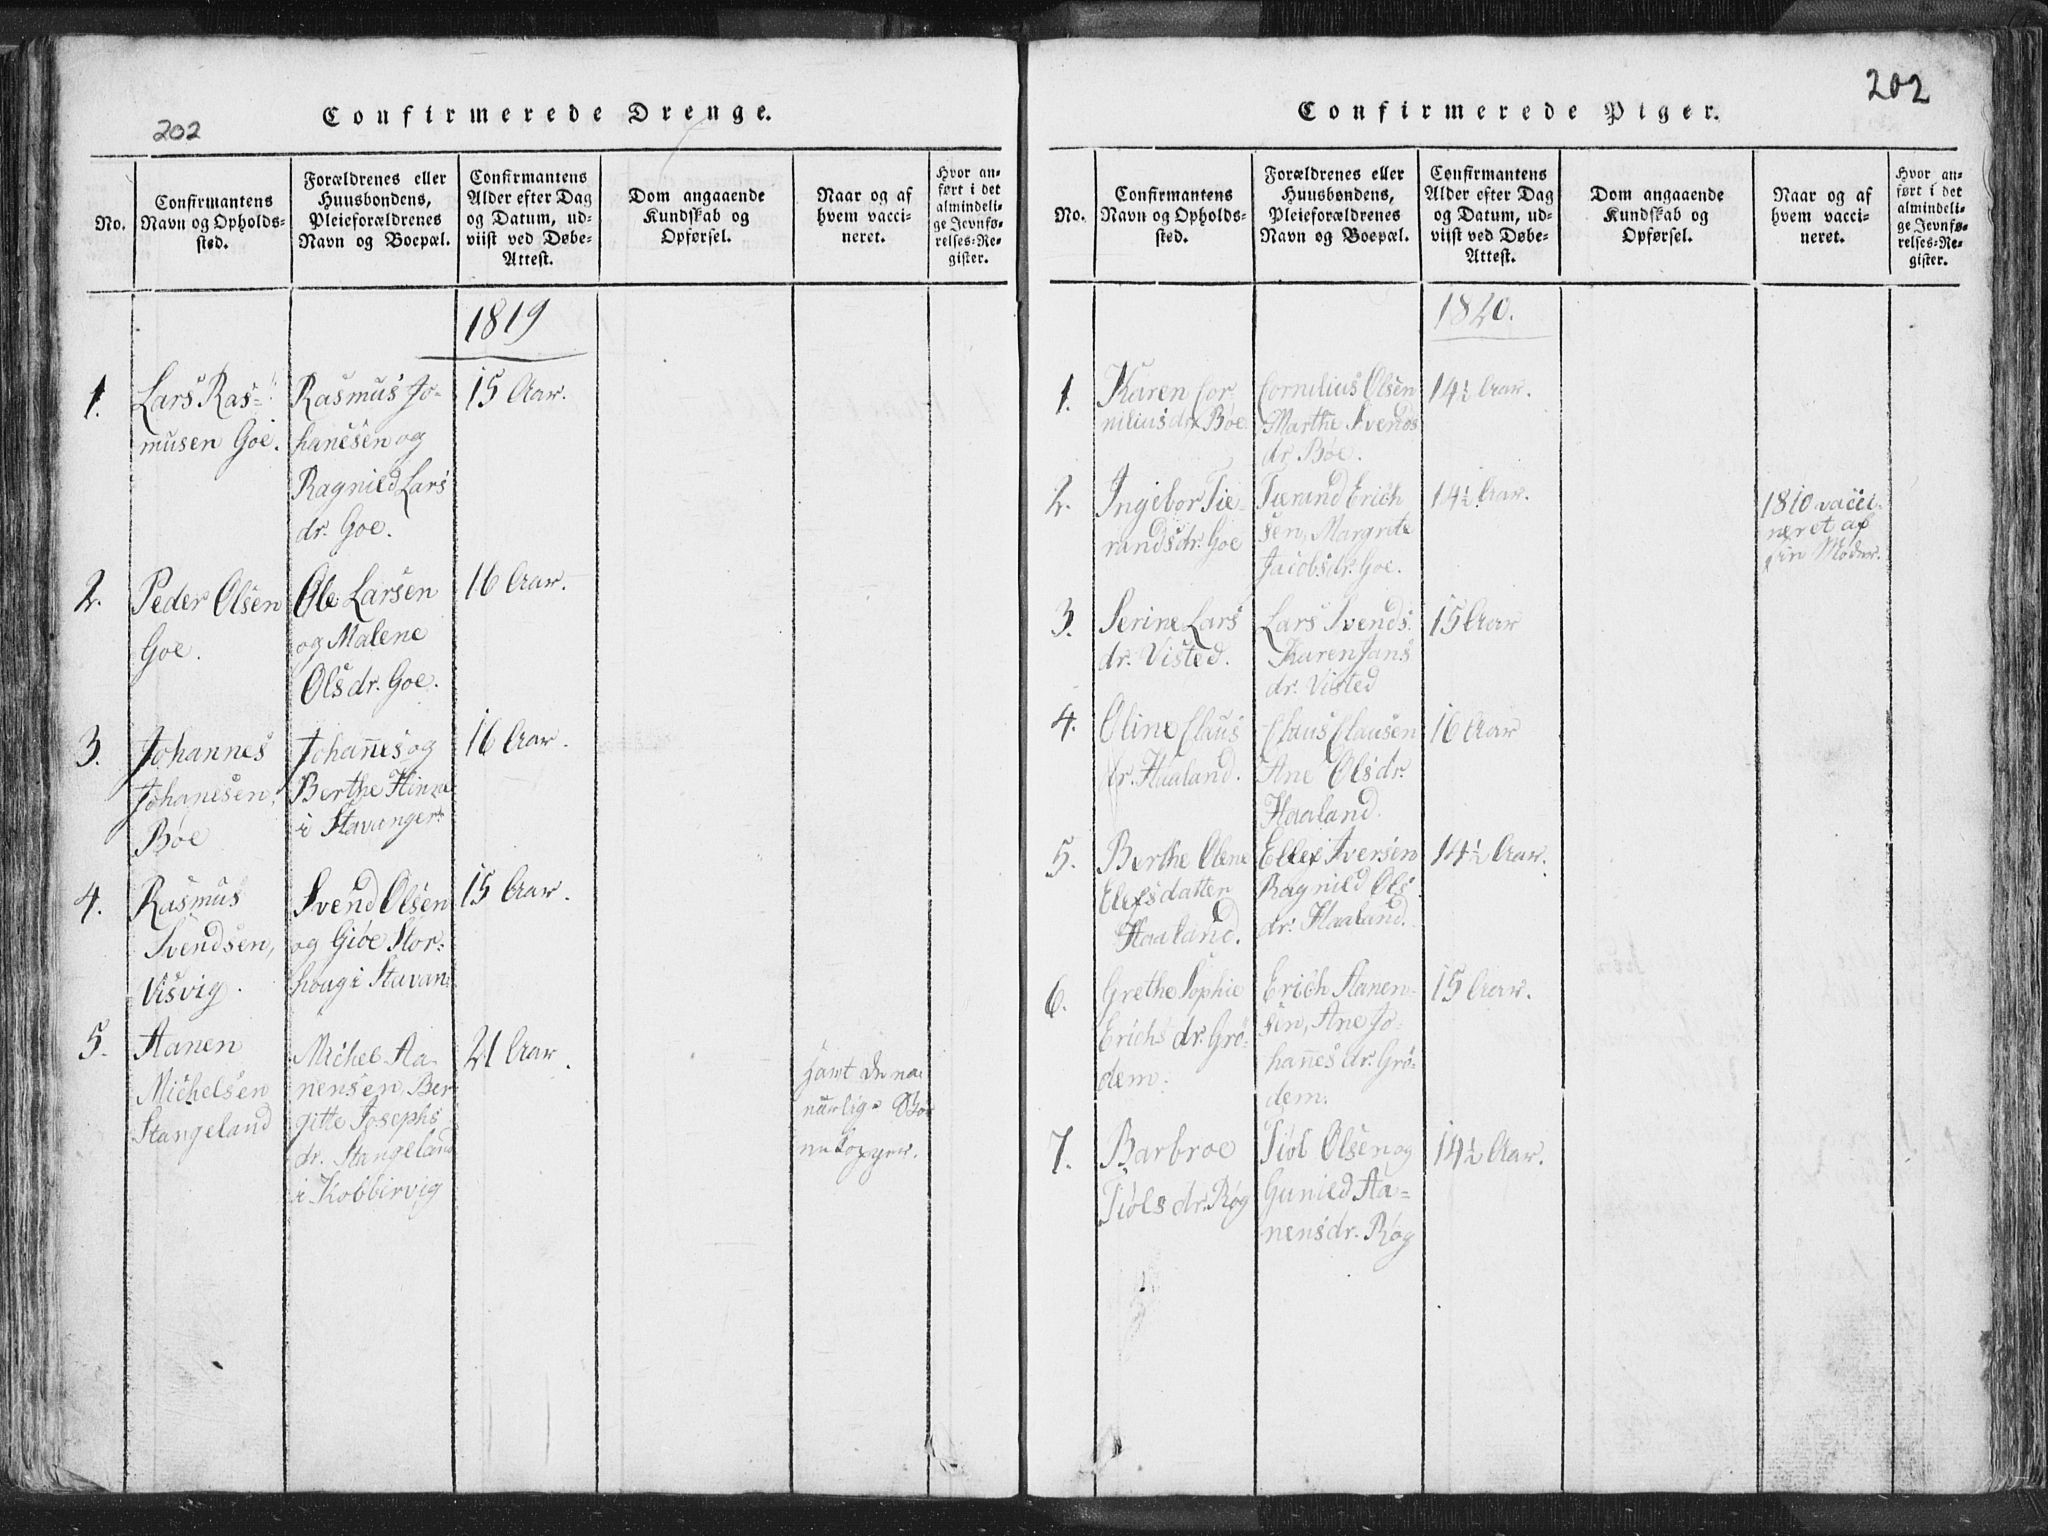 202
Confirmerede Drenge.
No.
Confirmantens
Navn og Opholds-
sted.
Forældrenes eller
Huusbondens,
Pleieforældrenes
Navn og Boepæl.
Confirmantens
Alder efter Dag
og Datum, ud-
viist ved Døbe-
Attest.
Dom angaaende
Kundskab og
Opførsel.
Naar og af
hvem vacci-
neret.
Hvor an-
ført i det
almindeli-
ge Jevnfø-
relses-Re-
gister.
1819
1.
Lars Ras-
musen Goe.
Rasmus Jo-
hanesen og
Ragnild Lars
dr. Goe.
15 Aar.
2.
Peder Olsen
Goe.
Ole Larsen
og Malene
Olsdr. Goe.
16 Aar.
3.
Johannes
Johanesen,
Bøe
Johanes og
Berthe
i Stavanger
16 Aar.
4.
Rasmus
Svendsen,
Visvig.
Svend Olsen
og Giøe Stor-
houg i Stavan
15 Aar.
5.
Aanen
Michelsen
Stangeland
Michel Aa-
nensen, Ber
gitte Josephs
dr. Stangeland
i Kobbervig
21 Aar.
havt de na-
turlige
Kopper.
202
Confirmerede Piger.
No.
Confirmantens
Navn og Opholds-
sted.
Forældrenes eller
Huusbondens,
Pleieforældrenes
Navn og Boepæl.
Confirmantens
Alder efter Dag
og Datum, ud-
viist ved Døbe-
Attest.
Dom angaaende
Kundskab og
Opførsel.
Naar og af
hvem vacci-
neret.
Hvor an-
ført i det
almindeli-
ge Jevnfø-
relses-Re-
gister.
1820.
1.
Karen Cor
niliusdr. Boe
Cornilius Olsen
Marthe Svends
dr Bøe.
14½ Aar.
2.
Ingebor Tie-
randsdr. Goe
Tierand Erich
sen, Margrete
Jacobsdr. Goe.
14½ Aar.
1810 vacci-
neret af
sin Moder.
3.
Serine Lars
dr. Visted.
Lars Svends.
Karen Jans
dr. Visted
15 Aar
4.
Oline Claus
dr. Haaland.
Claus Clausen
Ane Olsdr.
Haaland.
16 Aar
5.
Berthe Olene
Elefsdatter
Haaland.
Ellef Iversen
Ragnild Ols
dr. Haaland.
14½ Aar.
6.
Grethe Sophie
Erichsdr. Grø-
dem.
Erich Aanen-
sen, Ane Jo-
hanes dr. Grø-
dem.
15 Aar.
7.
Barbroe
Tiols dr. Røg
Tiol Olsen og
Gunild Aa-
nensdr. Røg
14½ Aar.